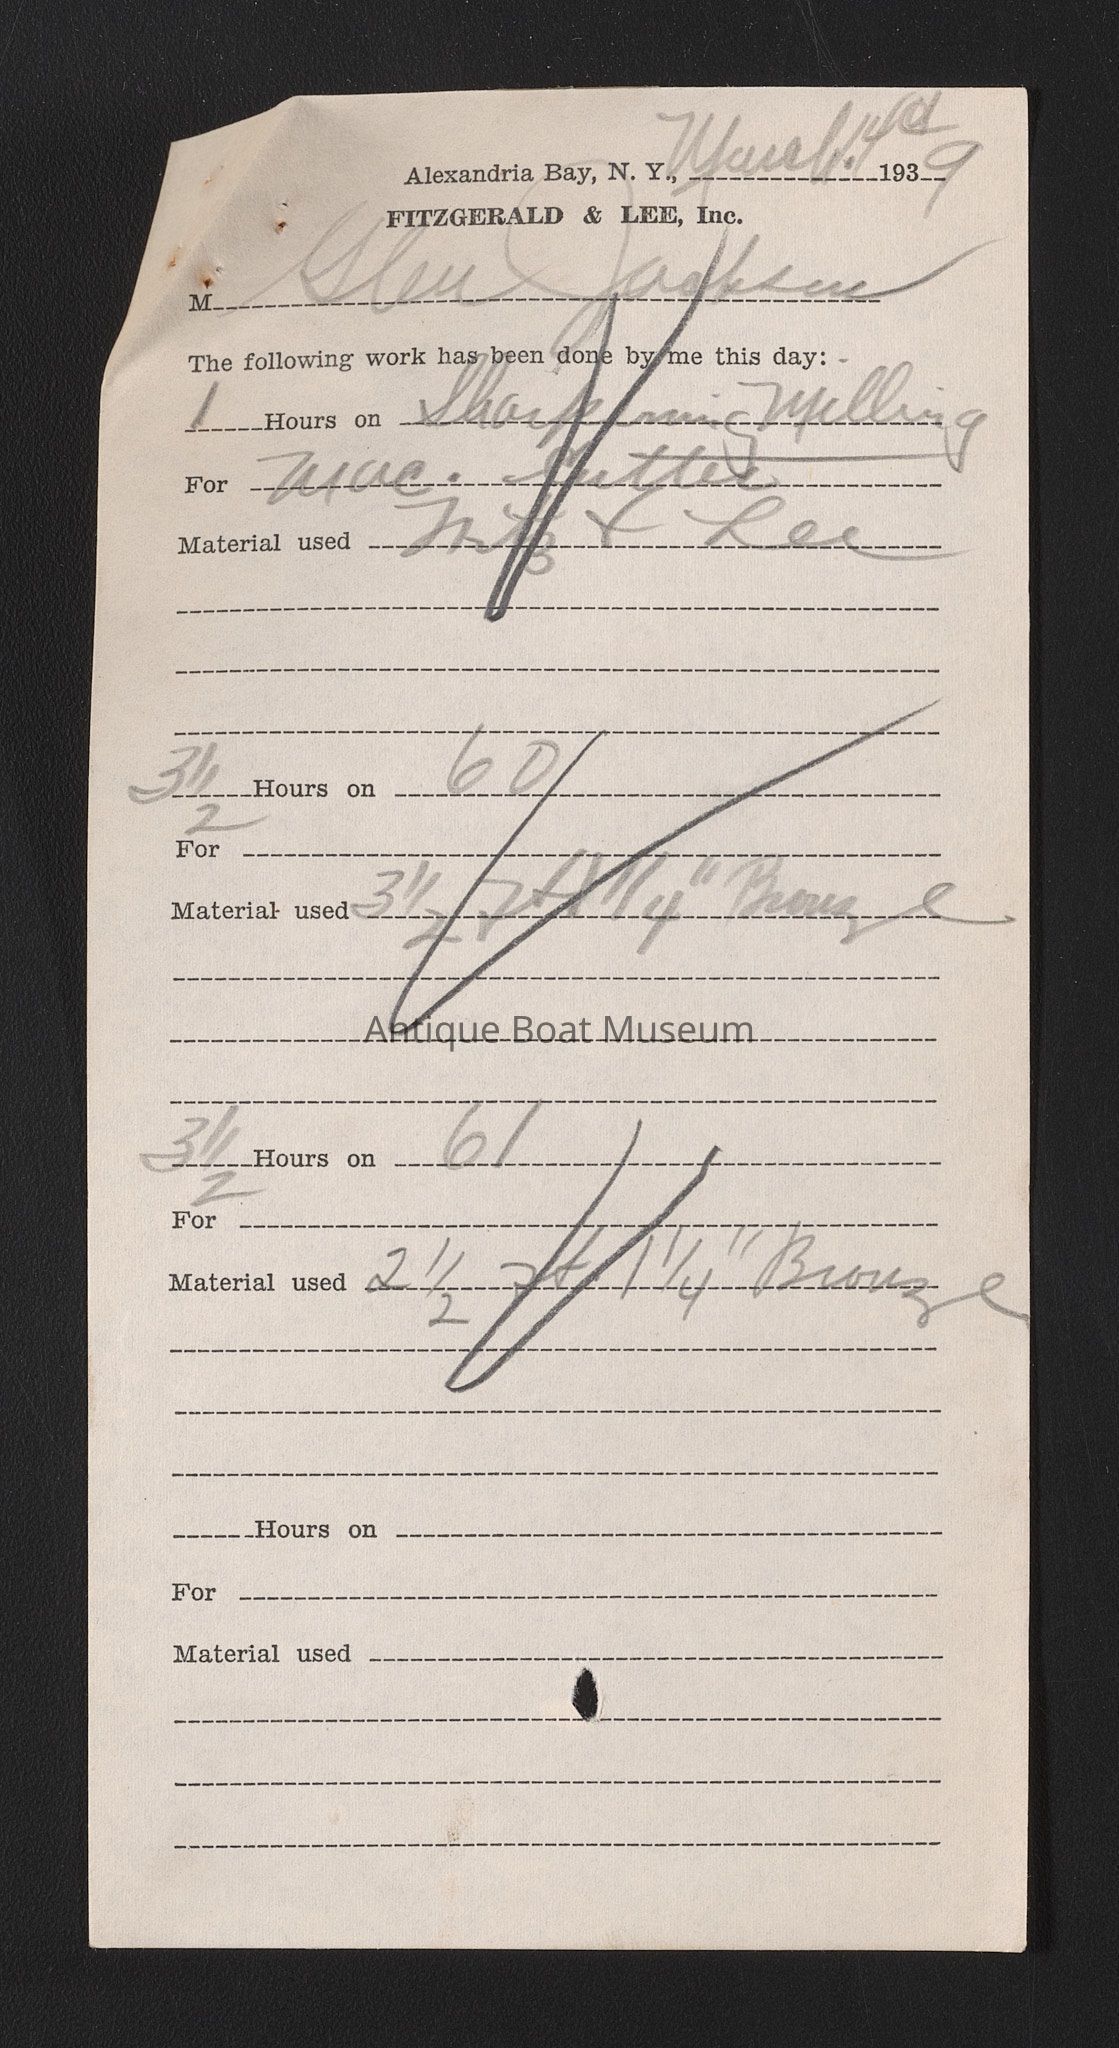 Alexandria Bay, N. Y., March 14th 1939
FITZGERALD & LEE, Inc.
M Glen Jackson
The following work has been done by me this day:
1 Hours on Sharpening Milling
For Mac. Cutter
Material used Fitz & Lee
3 1/2 Hours on 60
For
Material used 3 1/2 ft 1 1/4" Bronze
Antique Boat Museum
3 1/2 Hours on 61
For
Material used 2 1/2 ft 1 1/4" Bronze
Hours on
For
Material used